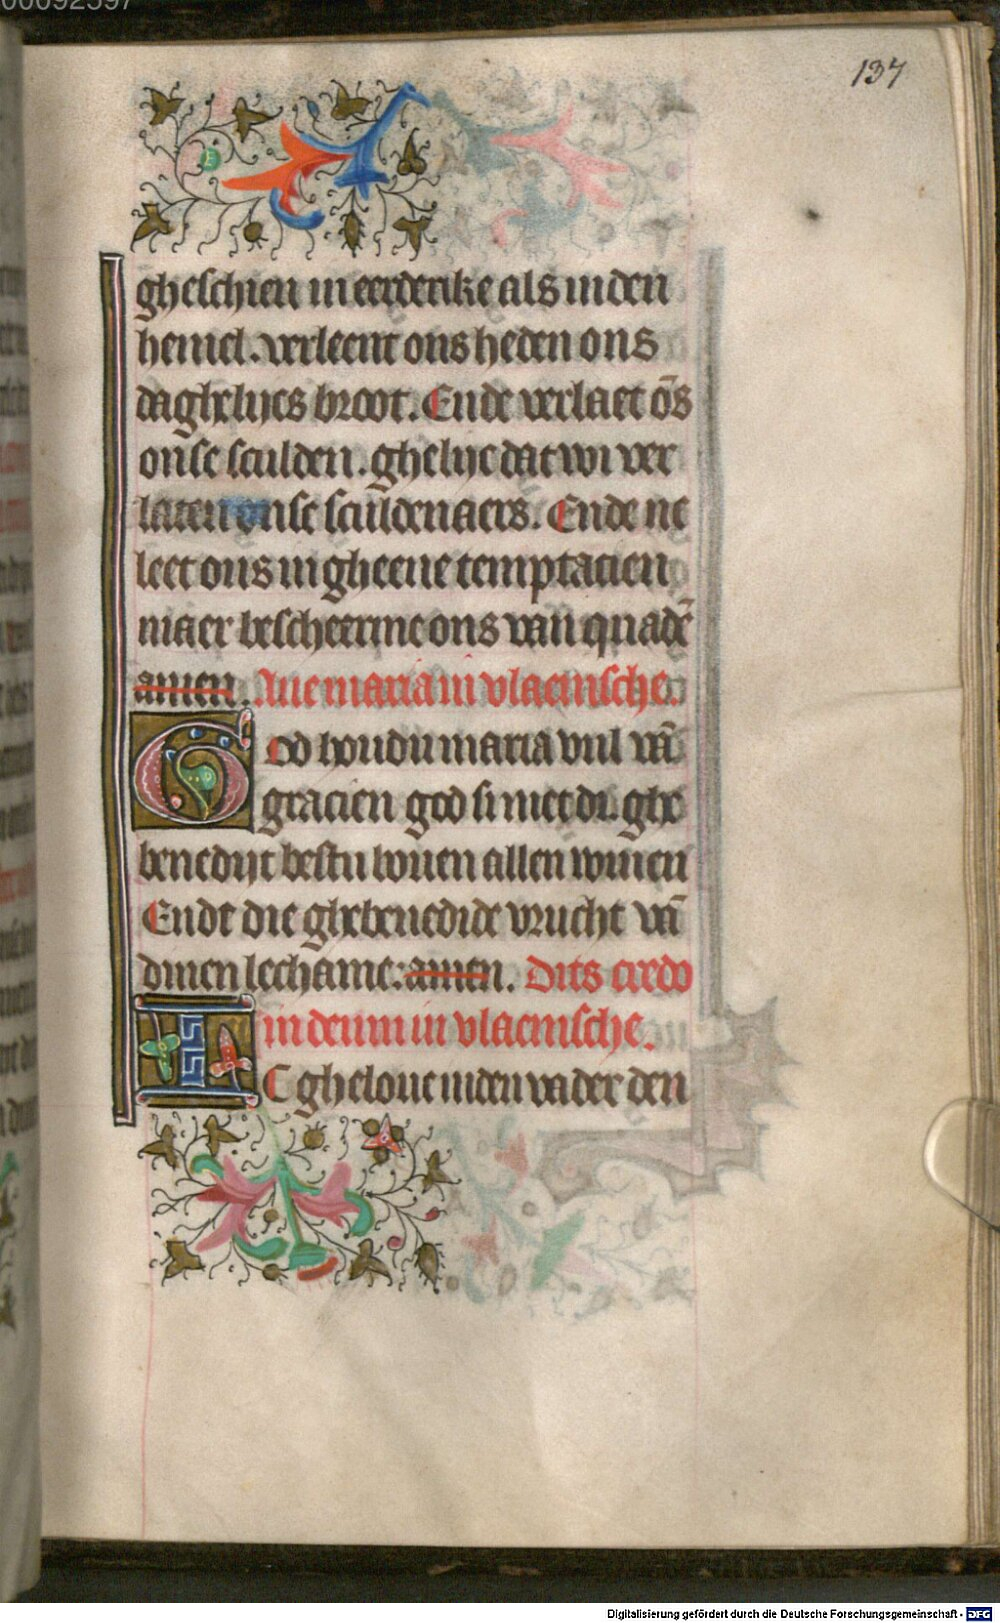 00092597
137
gheschien in eerderike als in den
hemel. verleent ons heden ons
daghelijcs broot. Ende verlaet ōs
onse sculden. ghelijc dat wi ver
laten onse sculdenaers. Ende ne
leet ons in gheene temptacien
maer bescheerme ons van quadē
amen. Aue maria in vlaemsche.
God houdu maria vul vā
gracien god si met di. ghe
benedijt bestu bouen allen wiuen
Ende die ghebenedide vrucht vā
dinen lechame: amen. Dits credo
in deum in vlaemsche.
IC gheloue in den vader den
Digitalisierung gefördert durch die Deutsche Forschungsgemeinschaft - DFG